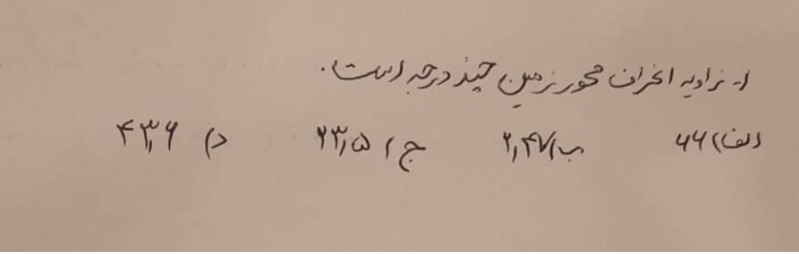 ۱- زاویه انحراف محور زمین چند درجه است.
الف) ۶۶ ب) ۲٫۴۷ ج) ۲۳٫۵ د) ۴۳٫۶